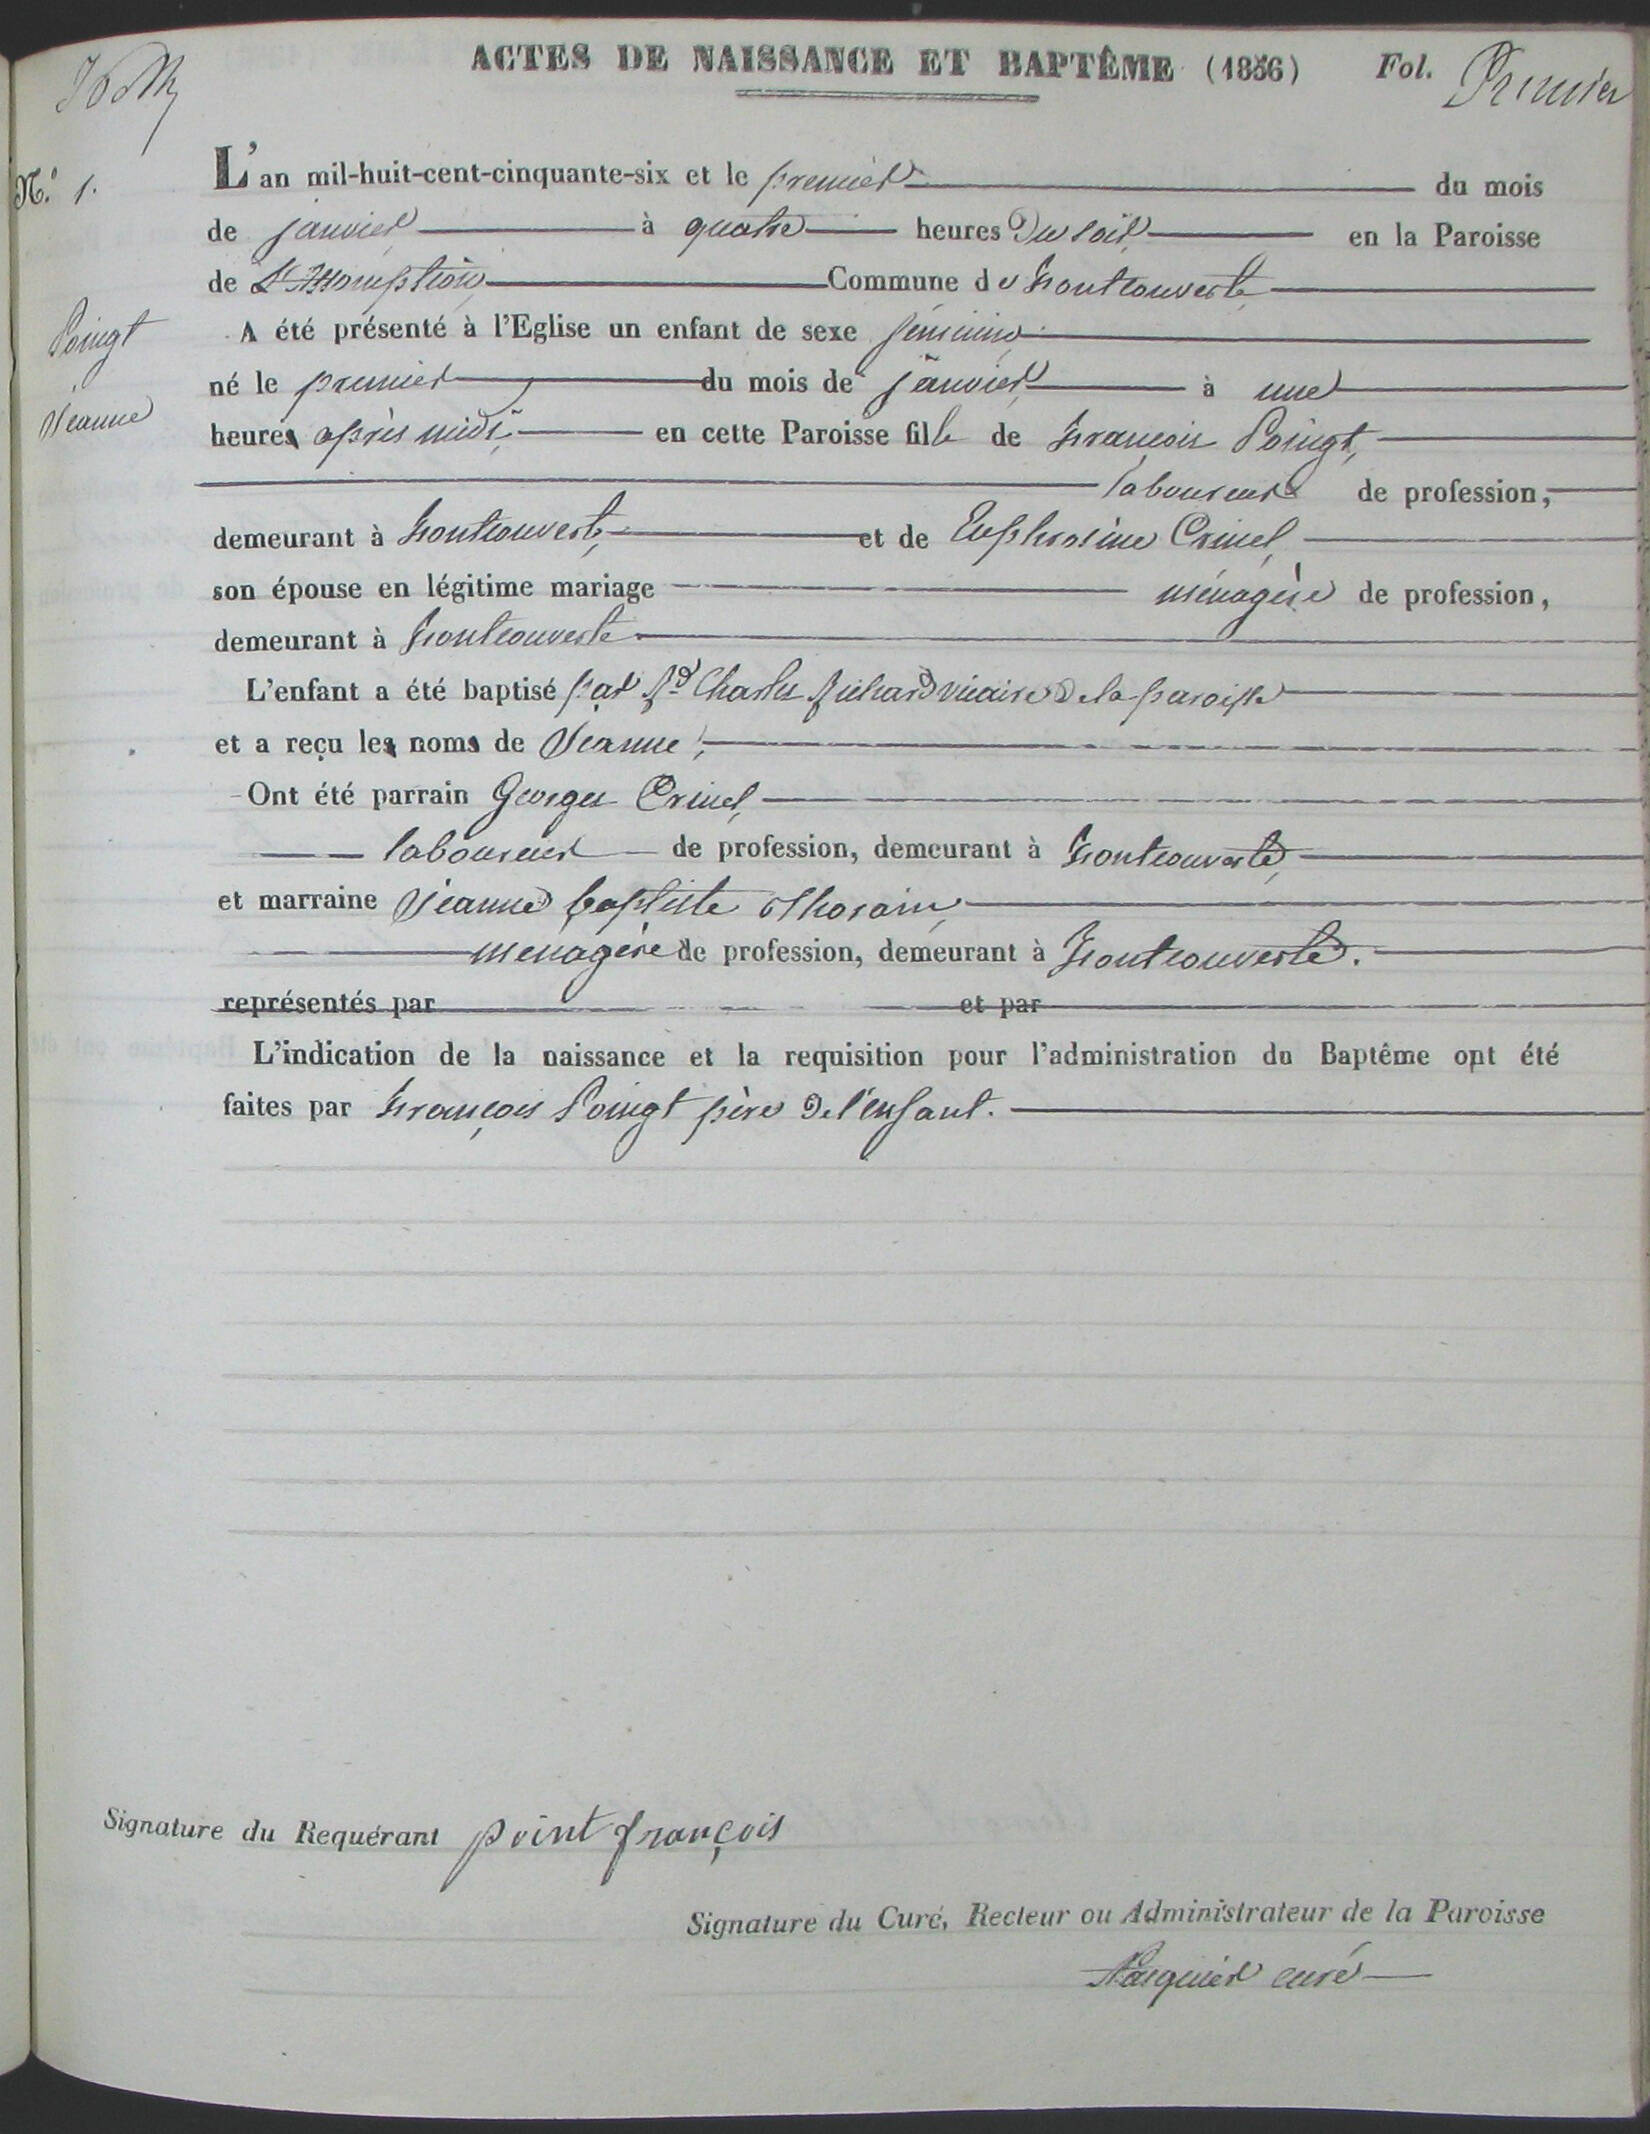 ACTES DE NAISSANCE ET BAPTÊME (1856) Fol. Premier
N.º 1.
L'an mil-huit-cent-cinquante-six et le premier du mois
de janvier à quatre heures du soir en la Paroisse
de L'Assomption Commune de Montcouverte
A été présenté à l'Eglise un enfant de sexe féminin
Poingt
né le premier du mois de janvier à une
Jeanne
heure après midi, en cette Paroisse fille de François Poingt,
laboureur de profession,
demeurant à Montcouverte, et de Euphrosine Crinel,
son épouse en légitime mariage ménagère de profession,
demeurant à Montcouverte
L'enfant a été baptisé par Rd Charles Richard vicaire de la paroisse
et a reçu les noms de Jeanne,
Ont été parrain Georges Crinel,
laboureur de profession, demeurant à Montcouverte,
et marraine Jeanne baptiste
ménagère de profession, demeurant à Montcouverte.
représentés par et par
L'indication de la naissance et la requisition pour l'administration du Baptême ont été
faites par François Poingt père de l'enfant.
Signature du Requérant point françois
Signature du Curé, Recteur ou Administrateur de la Paroisse
Pasquier curé